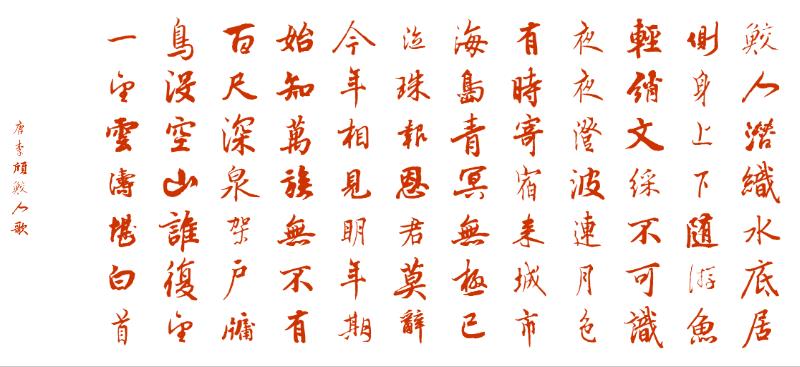 鮫人潛織水底居
側身上下隨游魚
輕綃文綵不可識
夜夜澄波連月色
有時寄宿來城市
海島青冥無極已
泣珠報恩君莫辭
今年相見明年期
始知萬族無不有
百尺深泉架戶牖
鳥沒空山誰復望
一望雲濤堪白首
唐李頎鮫人歌